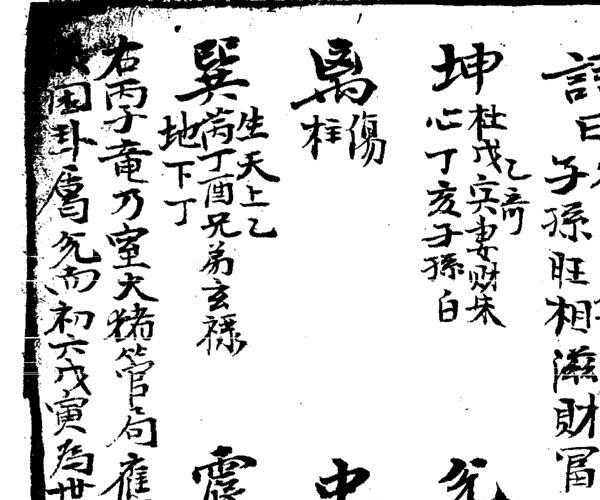 詩曰
子孫旺相滋財冨
坤
杜戊寅妻財朱
乙奇
心丁亥子孫白
兌
离
傷
柱
中
巽
生天上乙
芮丁酉兄弟玄祿
地下丁
震
右丙子竜乃室火猪管局應
困卦屬兌而初六戊寅為世